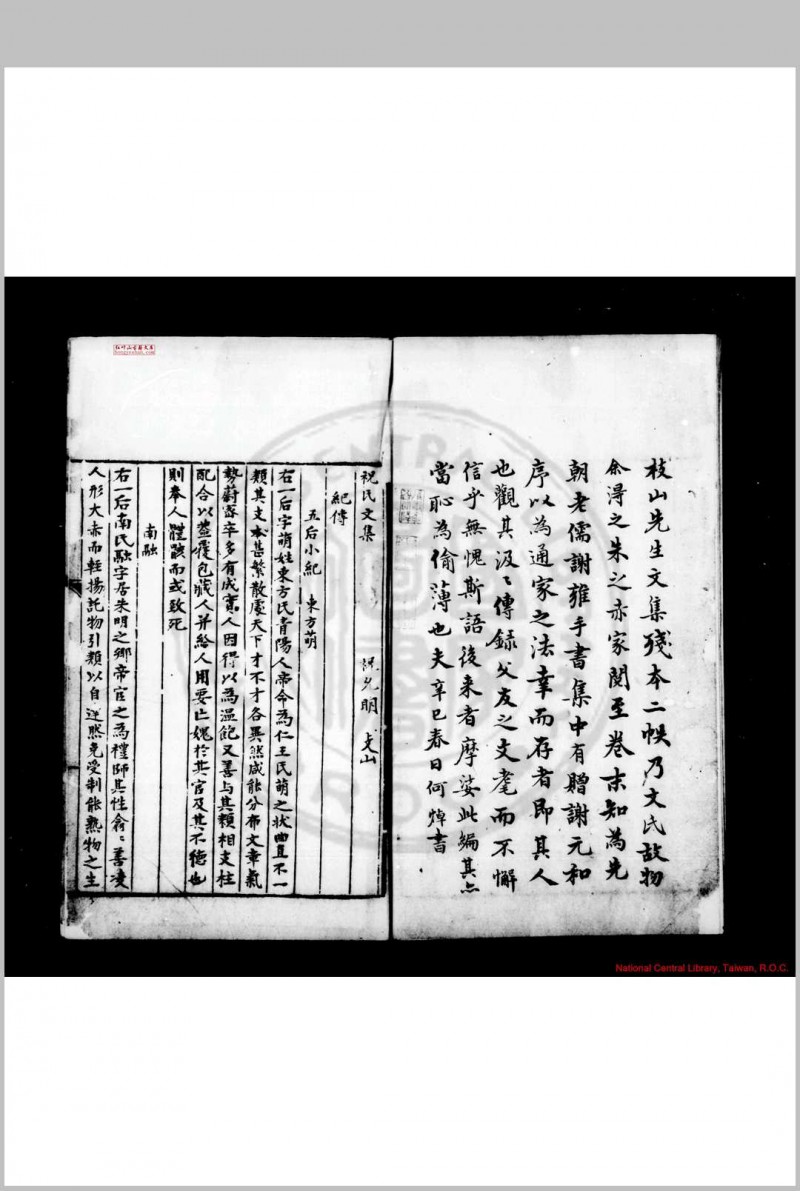 枝山先生文集殘本二帙乃文氏故物
余得之朱之赤家閱至卷末知為先
朝老儒謝雍手書集中有贈謝元和
序以為通家之法幸而存者即其人
也觀其汲〻傳錄父友之文耄而不懈
信乎無愧斯語後來者摩娑此編其亦
當恥為偷薄也夫辛巳春日何焯書
祝氏文集
紀傳 祝允明
五后小紀 東方萌
右一后字萌姓東方氏青陽人帝命為仁王氏萌之狀曲直不一
類其支本甚繁散處天下才不才各異然咸能分布文章氣
勢蔚蒼卒多有成實人因得以為溫飽又善與其類相支柱
配合以蓋覆包藏人并給人用要亡媿於其官及其不德也
則奉人體骸而或致死
南融
右一后南氏融字居朱明之鄉帝官之為禮師其性翕〻善凌
人形大赤而輕揚託物引類以自逆然克受制能熟物之生
National Central Library, Taiwan, R.O.C.